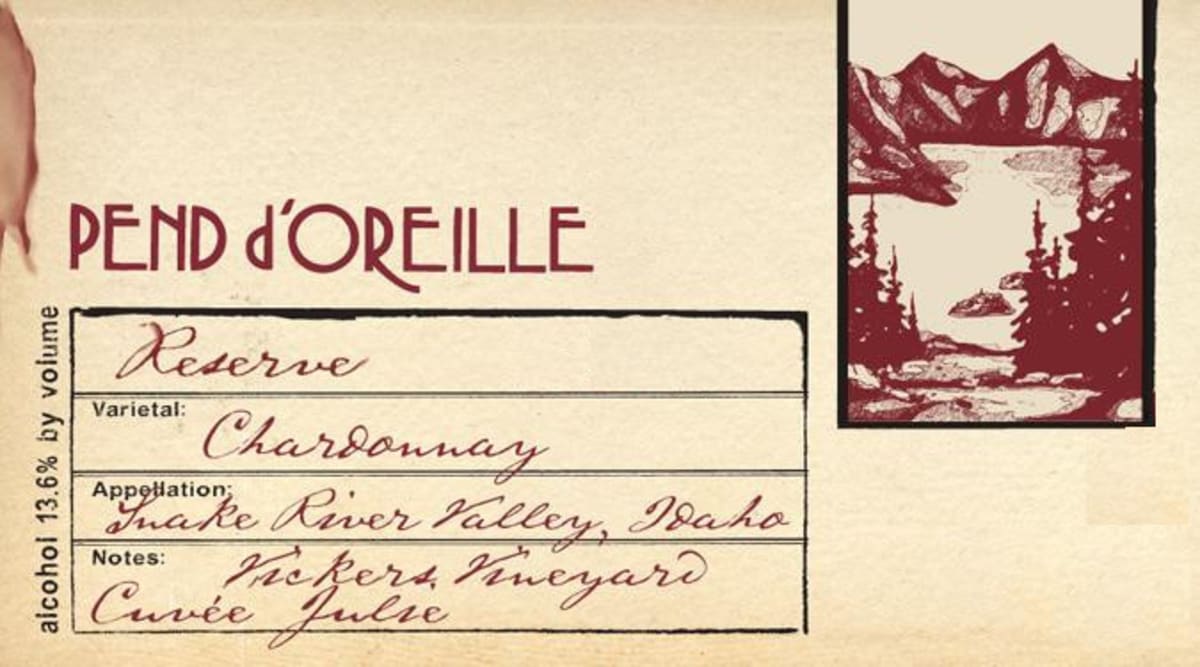 PEND d'OREILLE
Reserve
Varietal:
Chardonnay
Appellation:
Snake River Valley, Idaho
Notes:
Vickers Vineyard
Cuvée Julie
alcohol 13.6% by volume